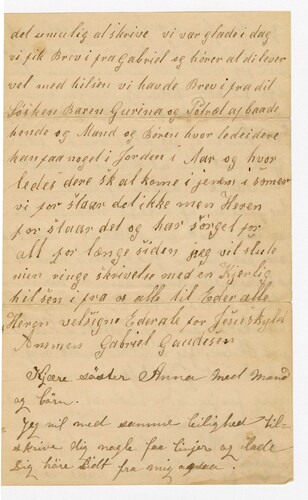 det umulig at skrive vi var glade i dag
vi fik Brev i fra Gabriel og hører at di lever
vel med hilsen vi havde Brev i fra dit
Søsken Baren Gurina og af baade
hende og Mand og Bören hvor ledes i dere
kan faa noget i Jorden i Aar og hvor
ledes dere skal kome i jenem i somer
vi for staar det ikke men Heren
for staar det og har sørget for
alt for længe siden jeg vil slute
min ringe skrivelse med en Kjerlig
hilsen i fra os alle til Eder alle
Heren velsigne Eder ale for Jesus skyld
Ammen Gabriel Gaudesen
Kjære söster Anna med Mand
og børn.
Jeg vil med samme leilighed til-
skrive dig nogle faa linjer og lade
dig høre lidt fra mig ogsaa.